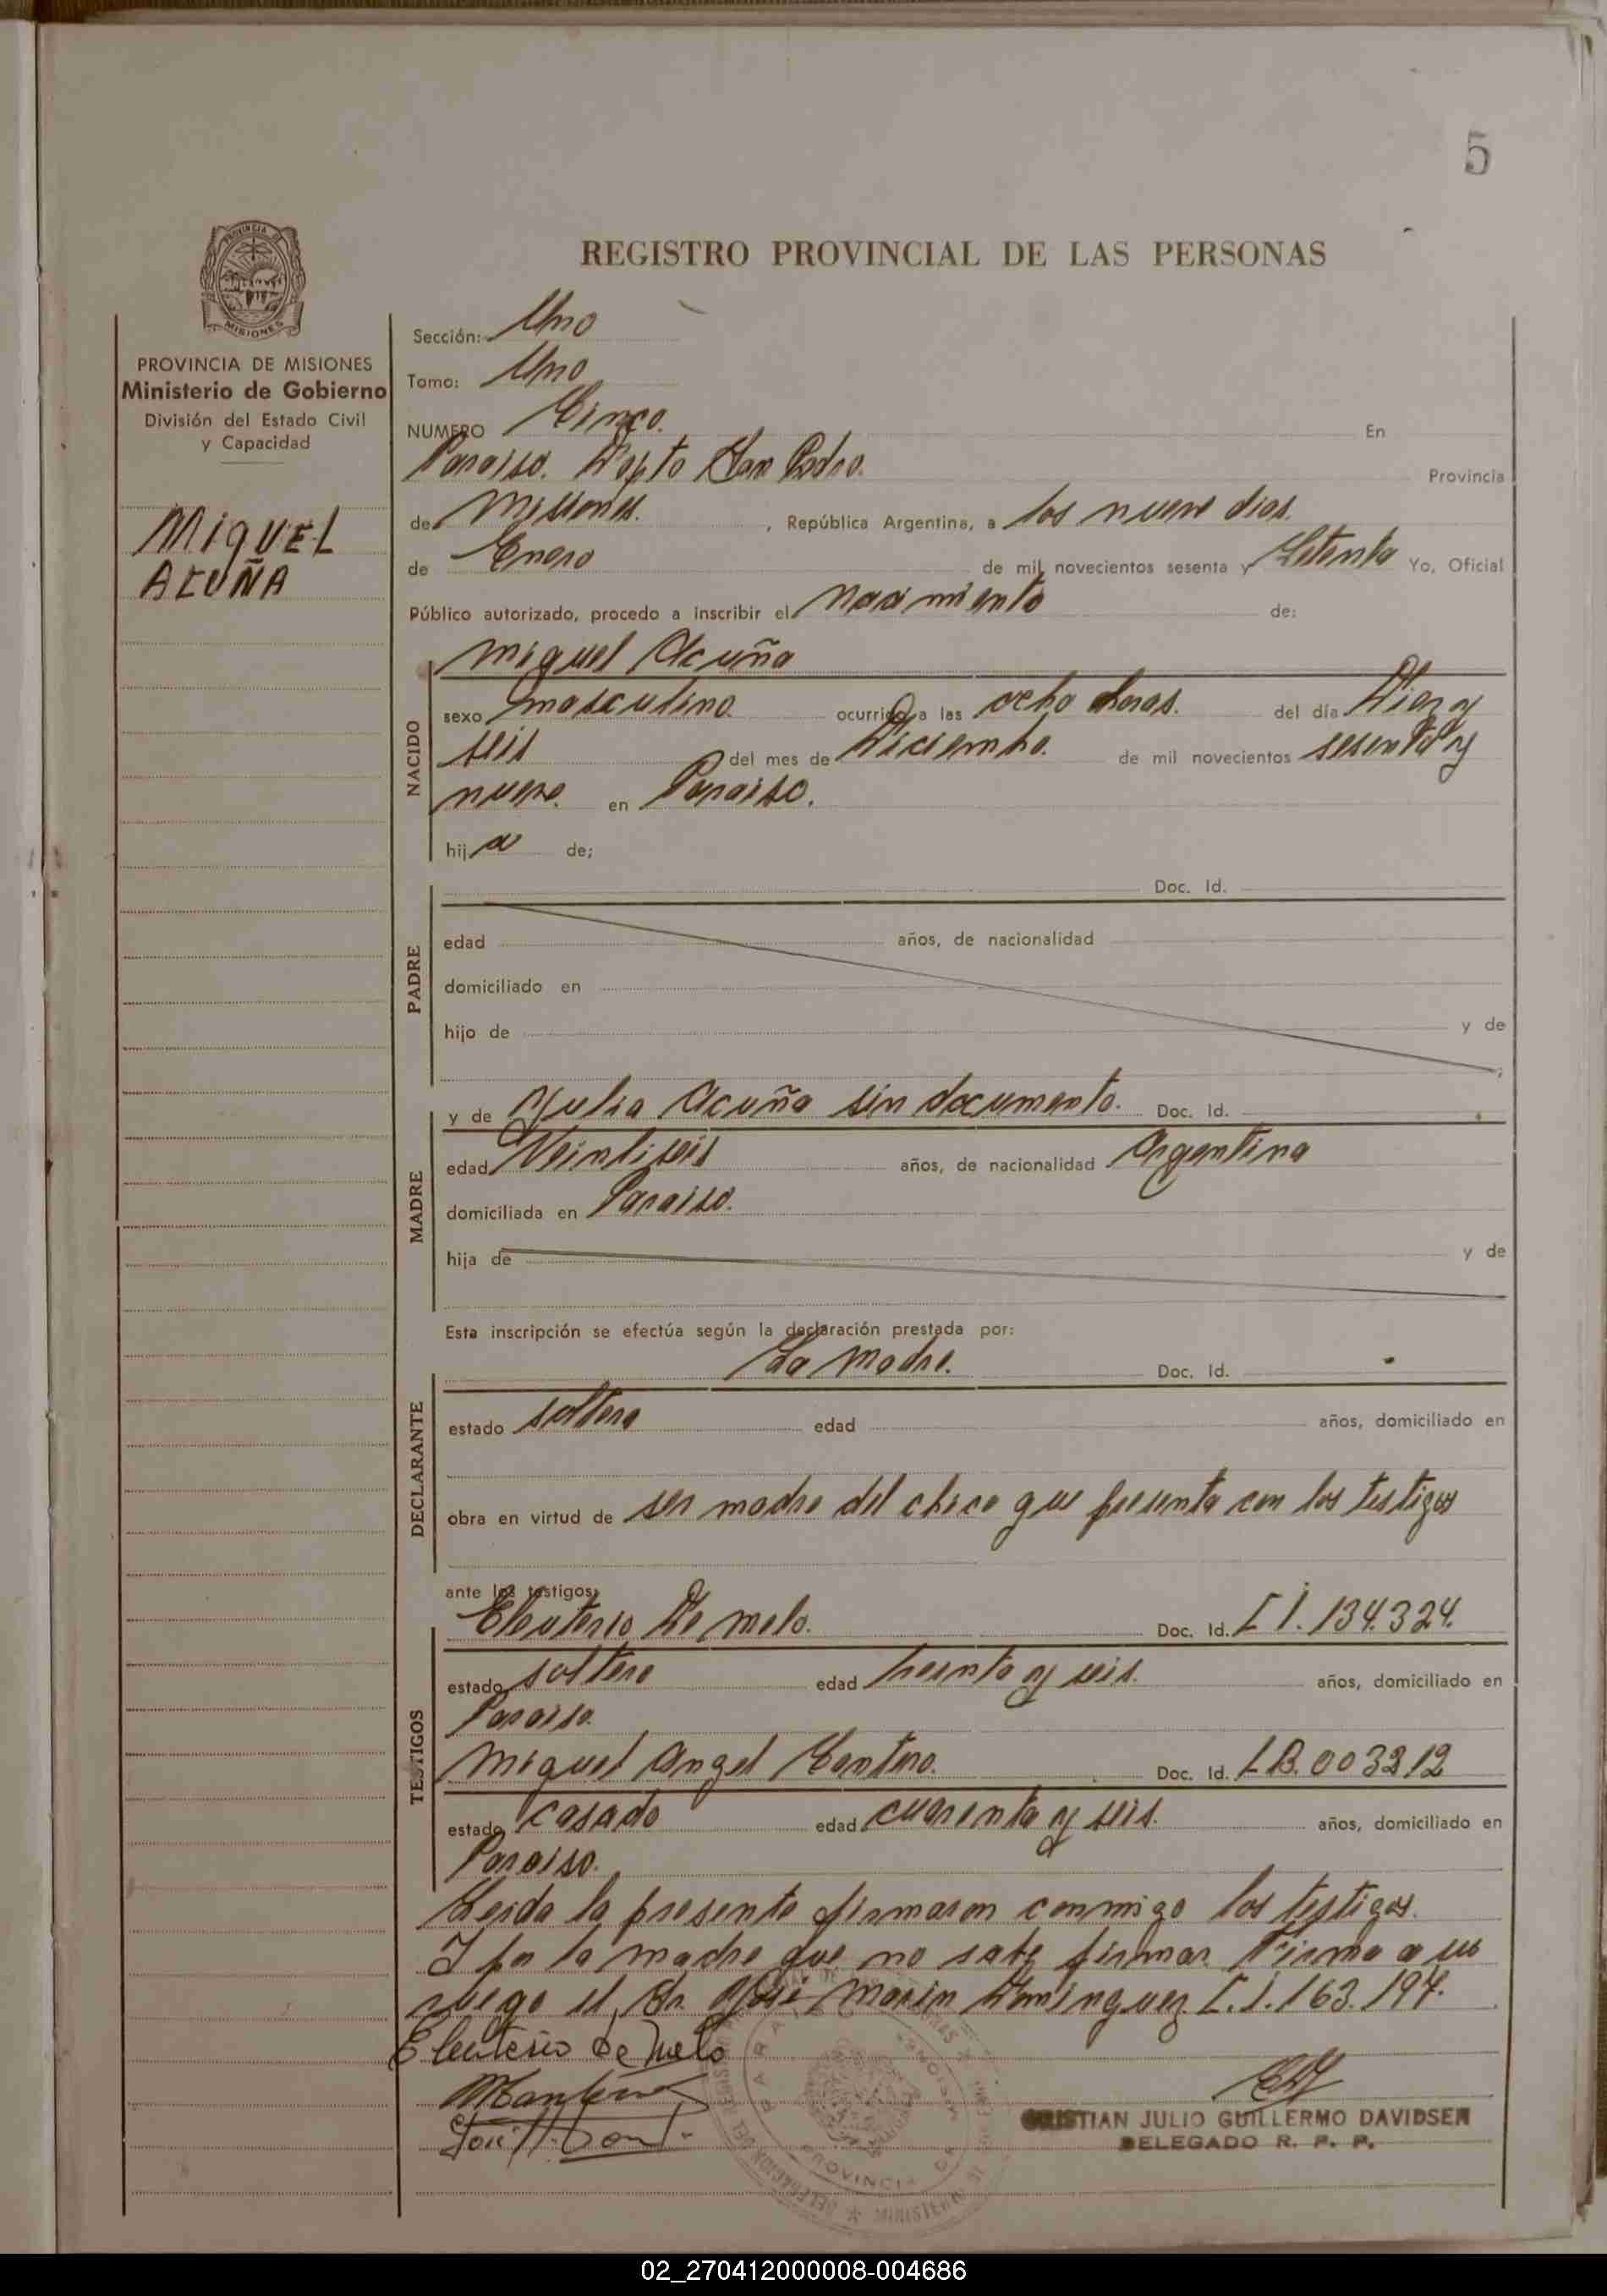 5
PROVINCIA DE MISIONES
REGISTRO PROVINCIAL DE LAS PERSONAS
PROVINCIA DE MISIONES
Ministerio de Gobierno
División del Estado Civil
y Capacidad
MIGUEL
ACUÑA
Sección: Uno
Tomo: Uno
NUMERO Cinco. En
Paraiso. Depto San Pedro. Provincia
de Misiones. , República Argentina, a los nueve dias.
de Enero de mil novecientos sesenta y Setenta Yo, Oficial
Público autorizado, procedo a inscribir el nacimiento de:
Miguel Acuña
NACIDO
sexo masculino. ocurrido a las ocho horas. del día Diez y
seis del mes de Diciembre. de mil novecientos sesenta y
nueve. en Paraiso.
hij o de;
PADRE
Doc. Id.
edad años, de nacionalidad
domiciliado en
hijo de y de
;
MADRE
y de Julia Acuña sin documento. Doc. Id.
edad Veintiseis años, de nacionalidad Argentina
domiciliada en Paraiso.
hija de y de
Esta inscripción se efectúa según la declaración prestada por:
DECLARANTE
La Madre. Doc. Id.
estado soltera edad años, domiciliado en
obra en virtud de ser madre del chico que presenta con los testigos
ante los testigos:
TESTIGOS
Eleuterio De melo. Doc. Id. C I. 134.324.
estado soltero edad treinta y seis. años, domiciliado en
Paraiso.
Miguel Angel Centeno. Doc. Id. L B. 003212
estado casado edad cuarenta y seis. años, domiciliado en
Paraiso.
Leida la presente firmaron conmigo los testigos.
I por la madre que no sabe firmar. Firma a su
ruego el Sr. José Marin Dominguez C.I. 163.194.
Eleuterio de Melo
CRISTIAN JULIO GUILLERMO DAVIDSEN
DELEGADO R. P. P.
02_270412000008-004686